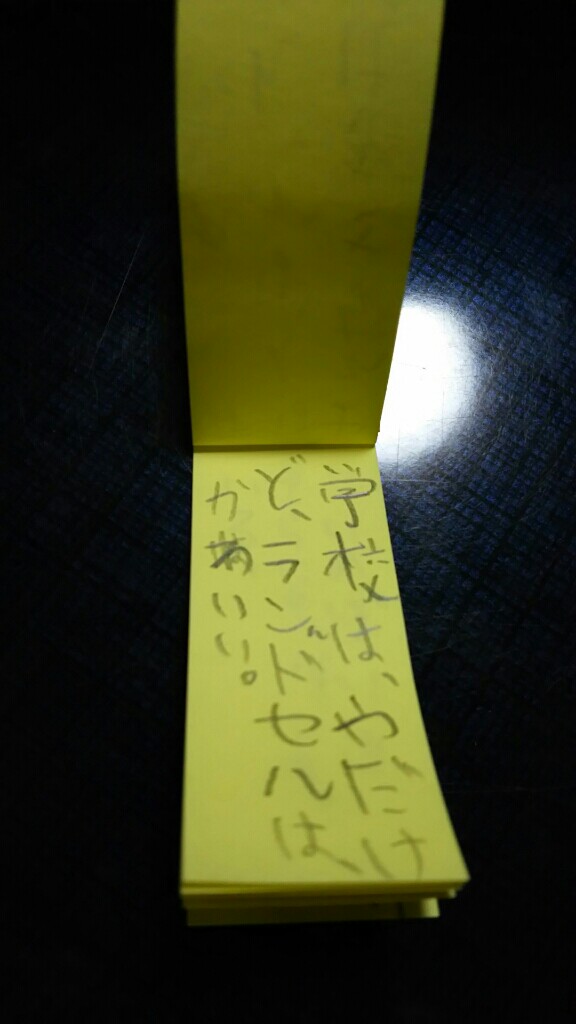 学校は、やだけ
ど、ランドセルは、
かあいい。